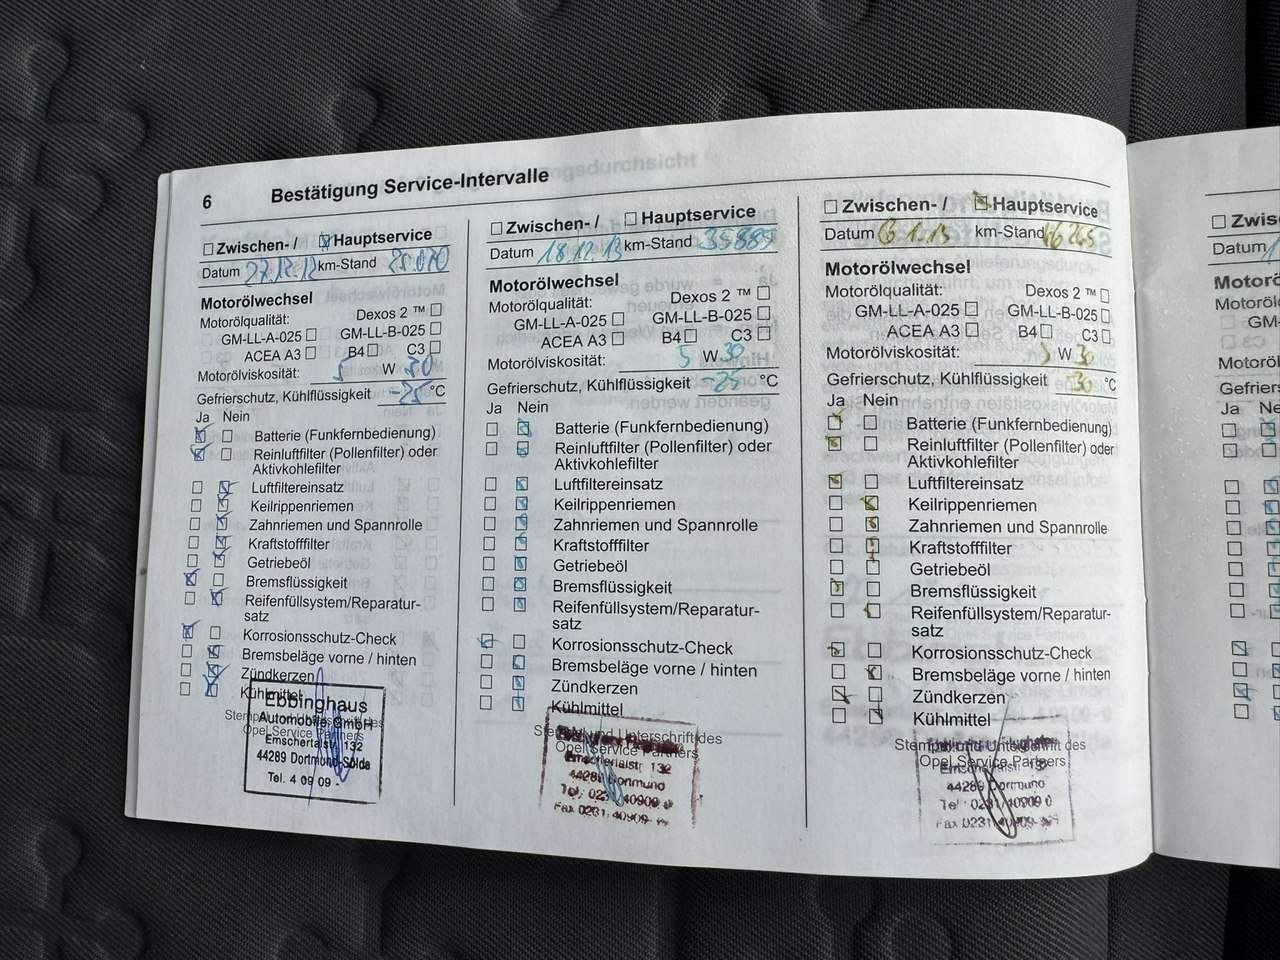 6 Bestätigung Service-Intervalle
Zwischen- / Hauptservice
Datum 27.12.12 km-Stand 25.070
Motorölwechsel
Motorölqualität: Dexos 2 ™
GM-LL-A-025 GM-LL-B-025
ACEA A3 B4 C3
Motorölviskosität: 5 W 30
Gefrierschutz, Kühlflüssigkeit -25 °C
Ja Nein
Batterie (Funkfernbedienung)
Reinluftfilter (Pollenfilter) oder
Aktivkohlefilter
Luftfiltereinsatz
Keilrippenriemen
Zahnriemen und Spannrolle
Kraftstofffilter
Getriebeöl
Bremsflüssigkeit
Reifenfüllsystem/Reparatur-
satz
Korrosionsschutz-Check
Bremsbeläge vorne / hinten
Zündkerzen
Kühlmittel
Stempel und Unterschrift des
Opel Service Partners
Ebbinghaus
Automobile GmbH
Emschertalstr. 132
44289 Dortmund-Sölde
Tel. 4 09 09 -
Zwischen- / Hauptservice
Datum 18.12.13 km-Stand 35889
Motorölwechsel
Motorölqualität: Dexos 2 ™
GM-LL-A-025 GM-LL-B-025
ACEA A3 B4 C3
Motorölviskosität: 5 W 30
Gefrierschutz, Kühlflüssigkeit -25 °C
Ja Nein
Batterie (Funkfernbedienung)
Reinluftfilter (Pollenfilter) oder
Aktivkohlefilter
Luftfiltereinsatz
Keilrippenriemen
Zahnriemen und Spannrolle
Kraftstofffilter
Getriebeöl
Bremsflüssigkeit
Reifenfüllsystem/Reparatur-
satz
Korrosionsschutz-Check
Bremsbeläge vorne / hinten
Zündkerzen
Kühlmittel
Stempel und Unterschrift des
Opel Service Partners
Emschertalstr. 132
44289 Dortmund
Tel.: 0231/40909 0
Fax 0231/40909-
Zwischen- / Hauptservice
Datum km-Stand 46265
Motorölwechsel
Motorölqualität: Dexos 2 ™
GM-LL-A-025 GM-LL-B-025
ACEA A3 B4 C3
Motorölviskosität: 5 W 30
Gefrierschutz, Kühlflüssigkeit -30 °C
Ja Nein
Batterie (Funkfernbedienung)
Reinluftfilter (Pollenfilter) oder
Aktivkohlefilter
Luftfiltereinsatz
Keilrippenriemen
Zahnriemen und Spannrolle
Kraftstofffilter
Getriebeöl
Bremsflüssigkeit
Reifenfüllsystem/Reparatur-
satz
Korrosionsschutz-Check
Bremsbeläge vorne / hinten
Zündkerzen
Kühlmittel
Stempel und Unterschrift des
Opel Service Partners
44289 Dortmund
Tel.: 0231/40909 0
Fax 0231/40909-
Zwis
Datum
Motoro
Motorölq
Motoröl
Gefrier
Ja Ne